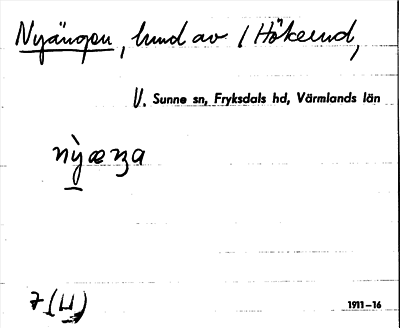 Nyängen, lund av 1 Hökerud,
V. Sunne sn, Fryksdals hd, Värmlands län
nỳæŋa
7 (H)
1911–16